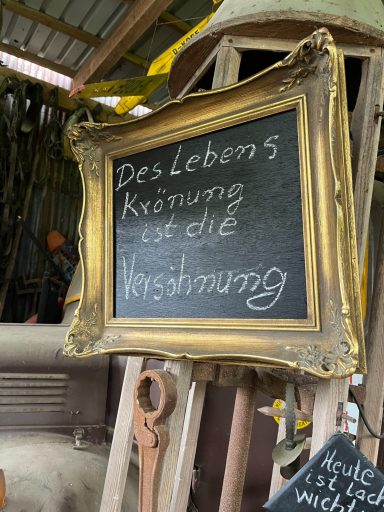 Des Lebens
Krönung
ist die
Versöhnung
Heute
ist lach
wicht